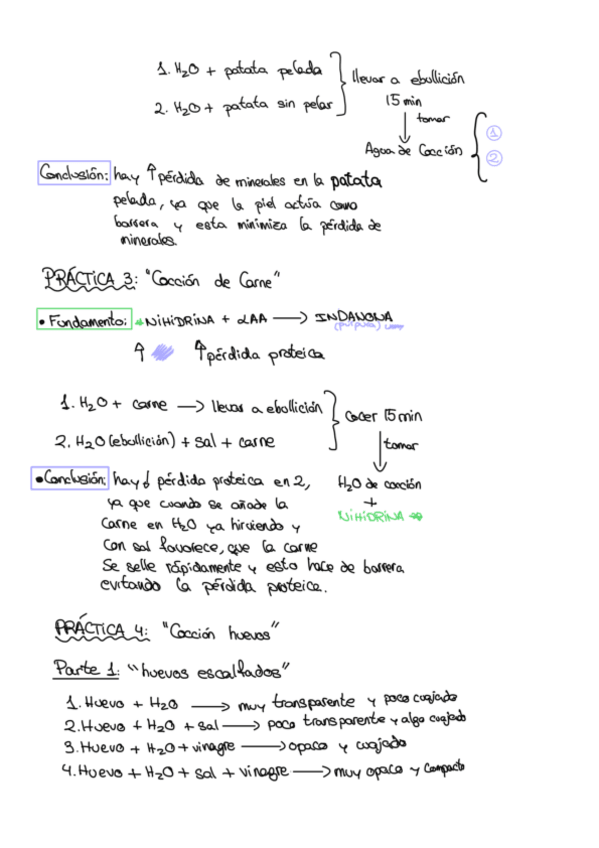 1. H₂O + patata pelada
2. H₂O + patata sin pelar
llevar a ebullición
15 min
tomar
Agua de Cocción
①
②
Conclusión: hay ↑ pérdida de minerales en la patata
pelada, ya que la piel actúa como
barrera y esta minimiza la pérdida de
minerales.
PRÁCTICA 3: "Cocción de Carne"
• Fundamento: NiHiDRiNA + αAA → INDANONA
(púrpura)
↑ ↑ pérdida proteica
1. H₂O + carne → llevar a ebullición
2. H₂O (ebullición) + sal + carne
cocer 15 min
tomar
H₂O de cocción
+
NiHiDRiNA
• Conclusión: hay ↓ pérdida proteica en 2,
ya que cuando se añade la
carne en H₂O ya hirviendo y
con sal favorece, que la carne
se selle rápidamente y esto hace de barrera
evitando la pérdida proteica.
PRÁCTICA 4: "Cocción huevos"
Parte 1: "huevos escalfados"
1. Huevo + H₂O → muy transparente y poco cuajado
2. Huevo + H₂O + sal → poco transparente y algo cuajado
3. Huevo + H₂O + vinagre → opaco y cuajado
4. Huevo + H₂O + sal + vinagre → muy opaco y compacto